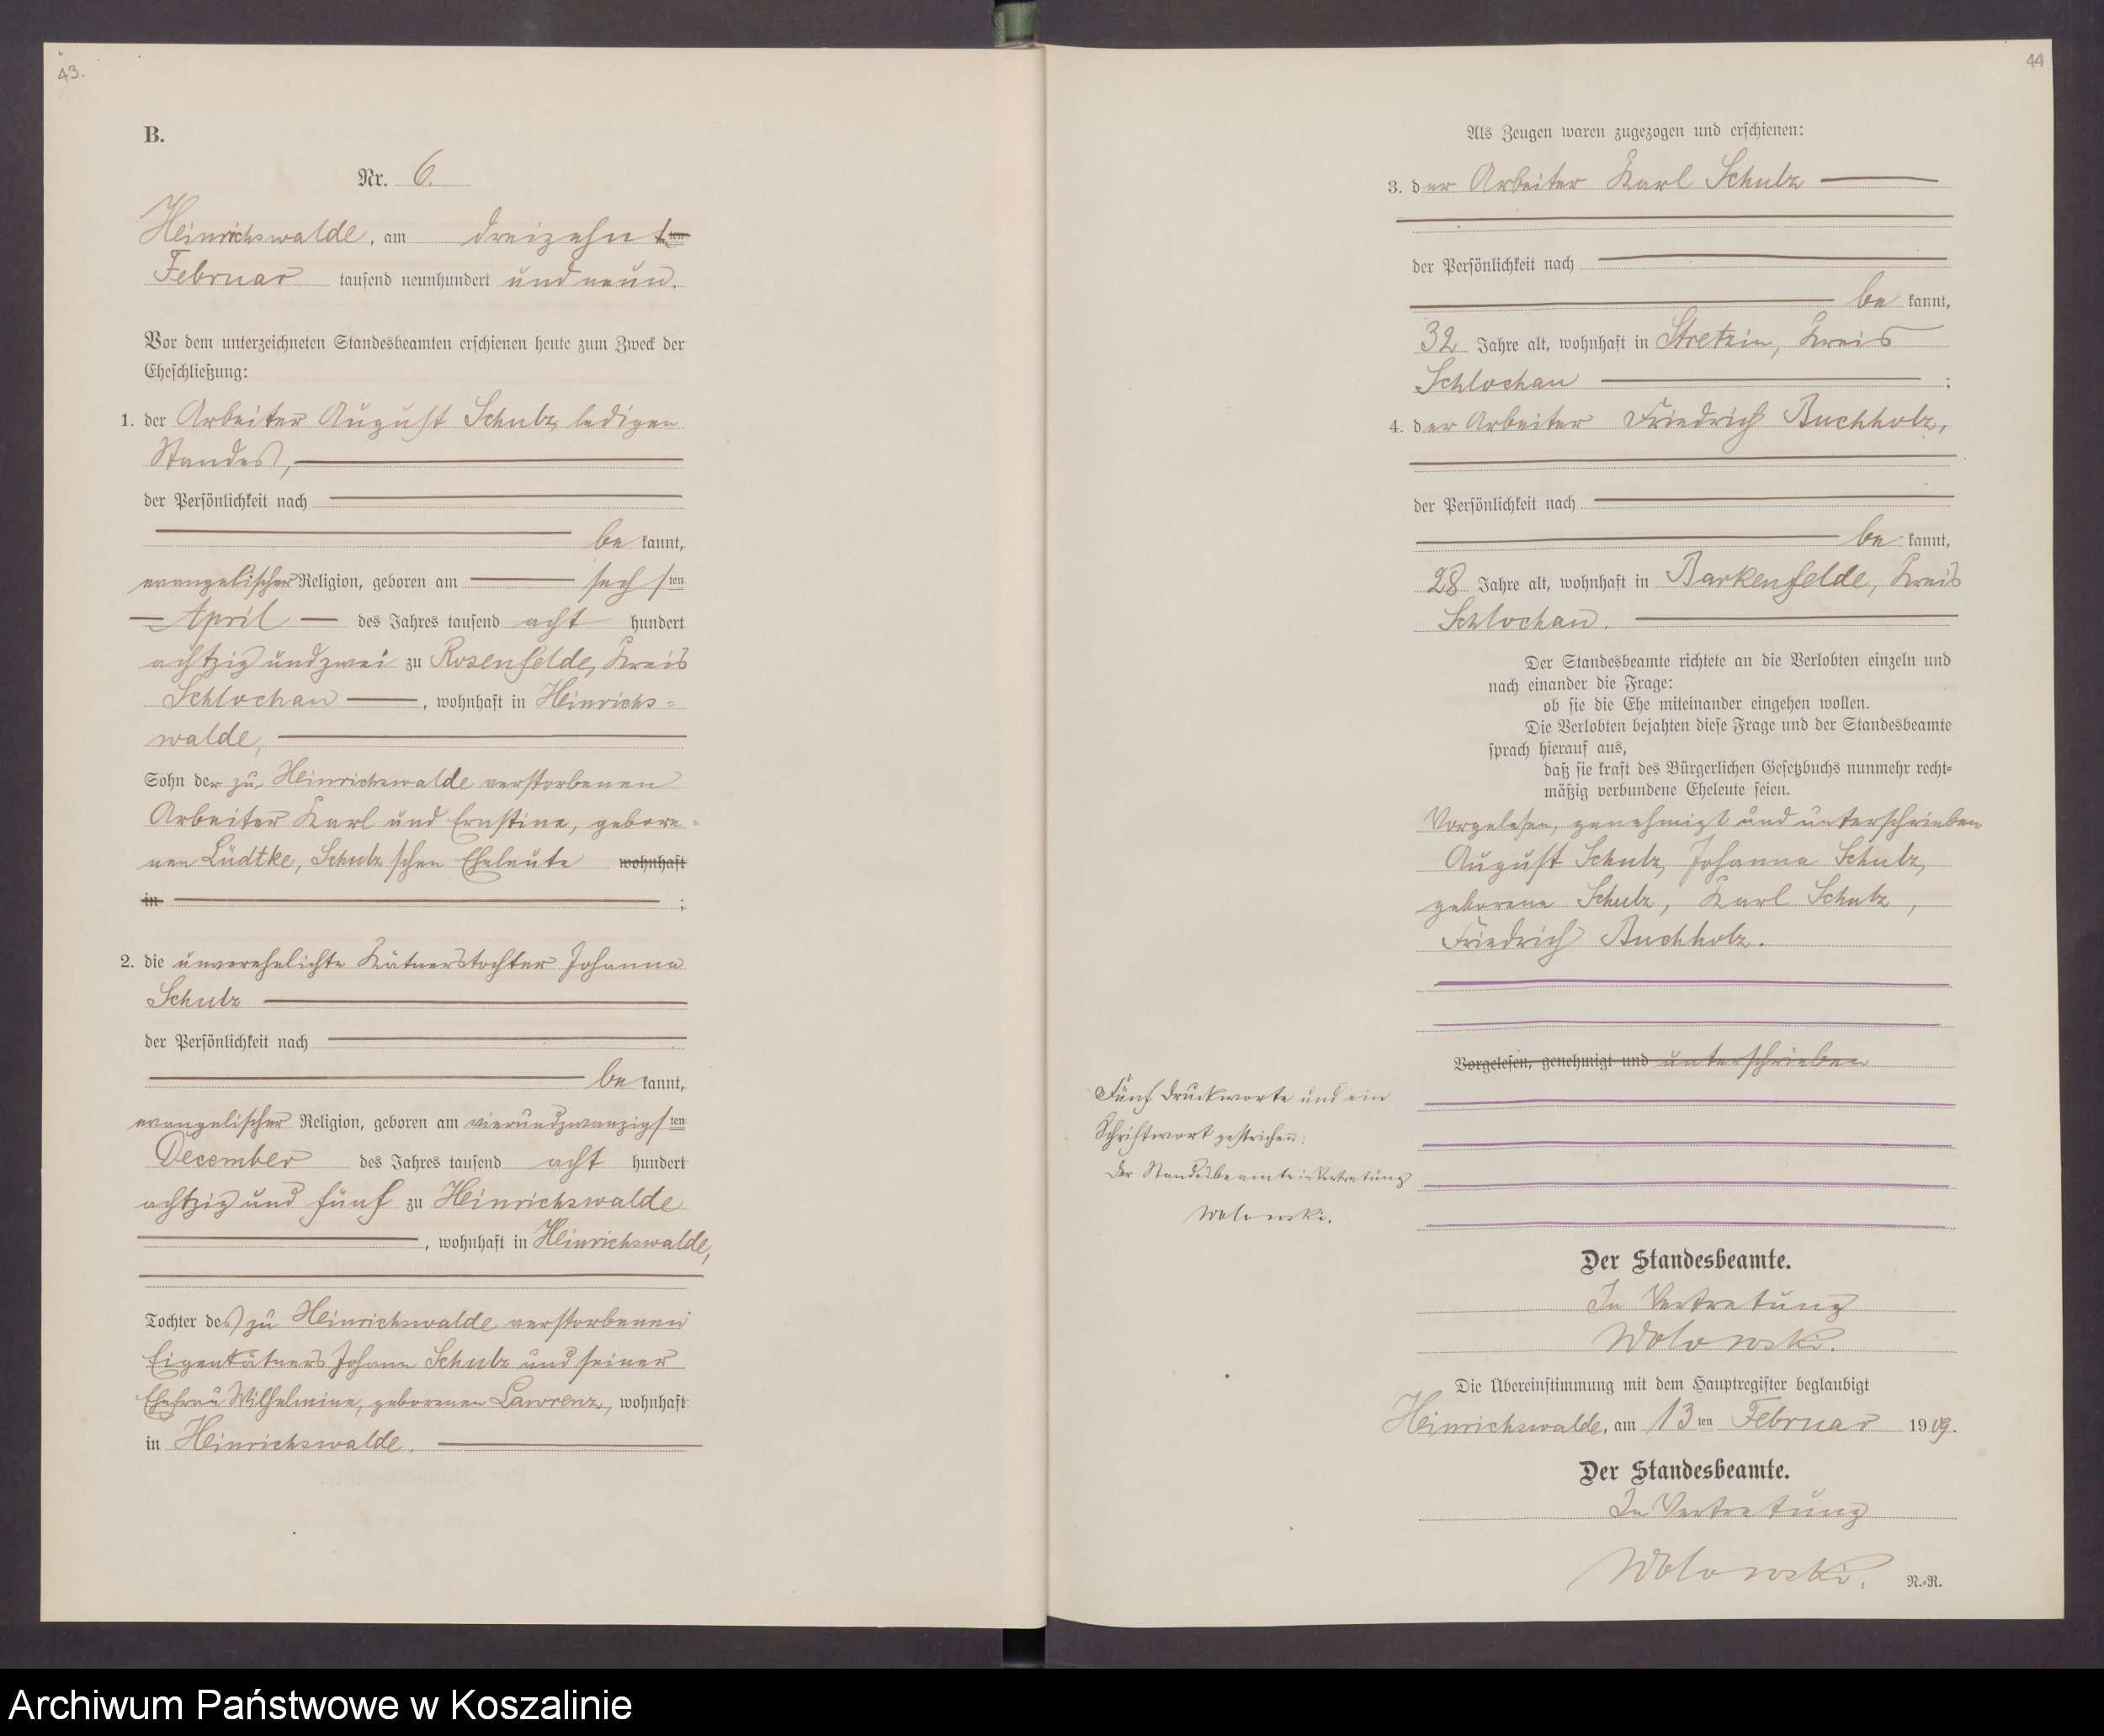 43.
B.
Nr. 6.
Heinrichswalde, am dreizehnt ten
Februar tausend neunhundert und neun.
Vor dem unterzeichneten Standesbeamten erschienen heute zum Zweck der
Eheschließung:
1. der Arbeiter August Schulz, ledigen
Standes,
der Persönlichkeit nach
be kannt,
evangelischer Religion, geboren am sechsten
April des Jahres tausend acht hundert
achtzig und zwei zu Rosenfelde, Kreis
Schlochau, wohnhaft in Heinrichs=
walde,
Sohn der zu Heinrichswalde verstorbenen
Arbeiter Karl und Ernstine, gebore=
nen Lüdtke, Schulz'schen Eheleute wohnhaft
in ;
2. die unverehelichte Kätnerstochter Johanna
Schulz
der Persönlichkeit nach
be kannt,
evangelischer Religion, geboren am vierundzwanzigsten
December des Jahres tausend acht hundert
achtzig und fünf zu Heinrichswalde
, wohnhaft in Heinrichswalde,
Tochter des zu Heinrichswalde verstorbenen
Eigenkätners Johann Schulz und seiner
Ehefrau Wilhelmine, geborenen Lawrenz, wohnhaft
in Heinrichswalde.
44
Als Zeugen waren zugezogen und erschienen:
3. der Arbeiter Karl Schulz
der Persönlichkeit nach
be kannt,
32 Jahre alt, wohnhaft in Stretzin, Kreis
Schlochau ;
4. der Arbeiter Friedrich Buchholz,
der Persönlichkeit nach
be kannt,
28 Jahre alt, wohnhaft in Barkenfelde, Kreis
Schlochau.
Der Standesbeamte richtete an die Verlobten einzeln und
nach einander die Frage:
ob sie die Ehe miteinander eingehen wollen.
Die Verlobten bejahten diese Frage und der Standesbeamte
sprach hierauf aus,
daß sie kraft des Bürgerlichen Gesetzbuchs nunmehr recht=
mäßig verbundene Eheleute seien.
Vorgelesen, genehmigt und unterschrieben
August Schulz, Johanna Schulz,
geborene Schulz, Karl Schulz,
Friedrich Buchholz.
Vorgelesen, genehmigt und unterschrieben
Fünf Druckworte und ein
Schriftwort gestrichen.
Der Standesbeamte in Vertretung
Wolowski.
Der Standesbeamte.
In Vertretung
Wolowski.
Die Übereinstimmung mit dem Hauptregister beglaubigt
Heinrichswalde, am 13 ten Februar 1909.
Der Standesbeamte.
In Vertretung
Wolowski.
N.=R.
Archiwum Państwowe w Koszalinie